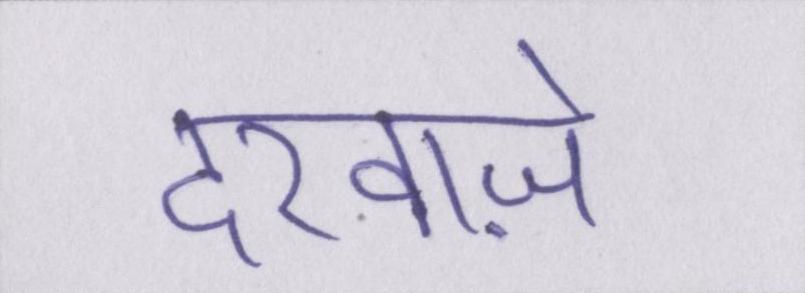 दरवाज़े